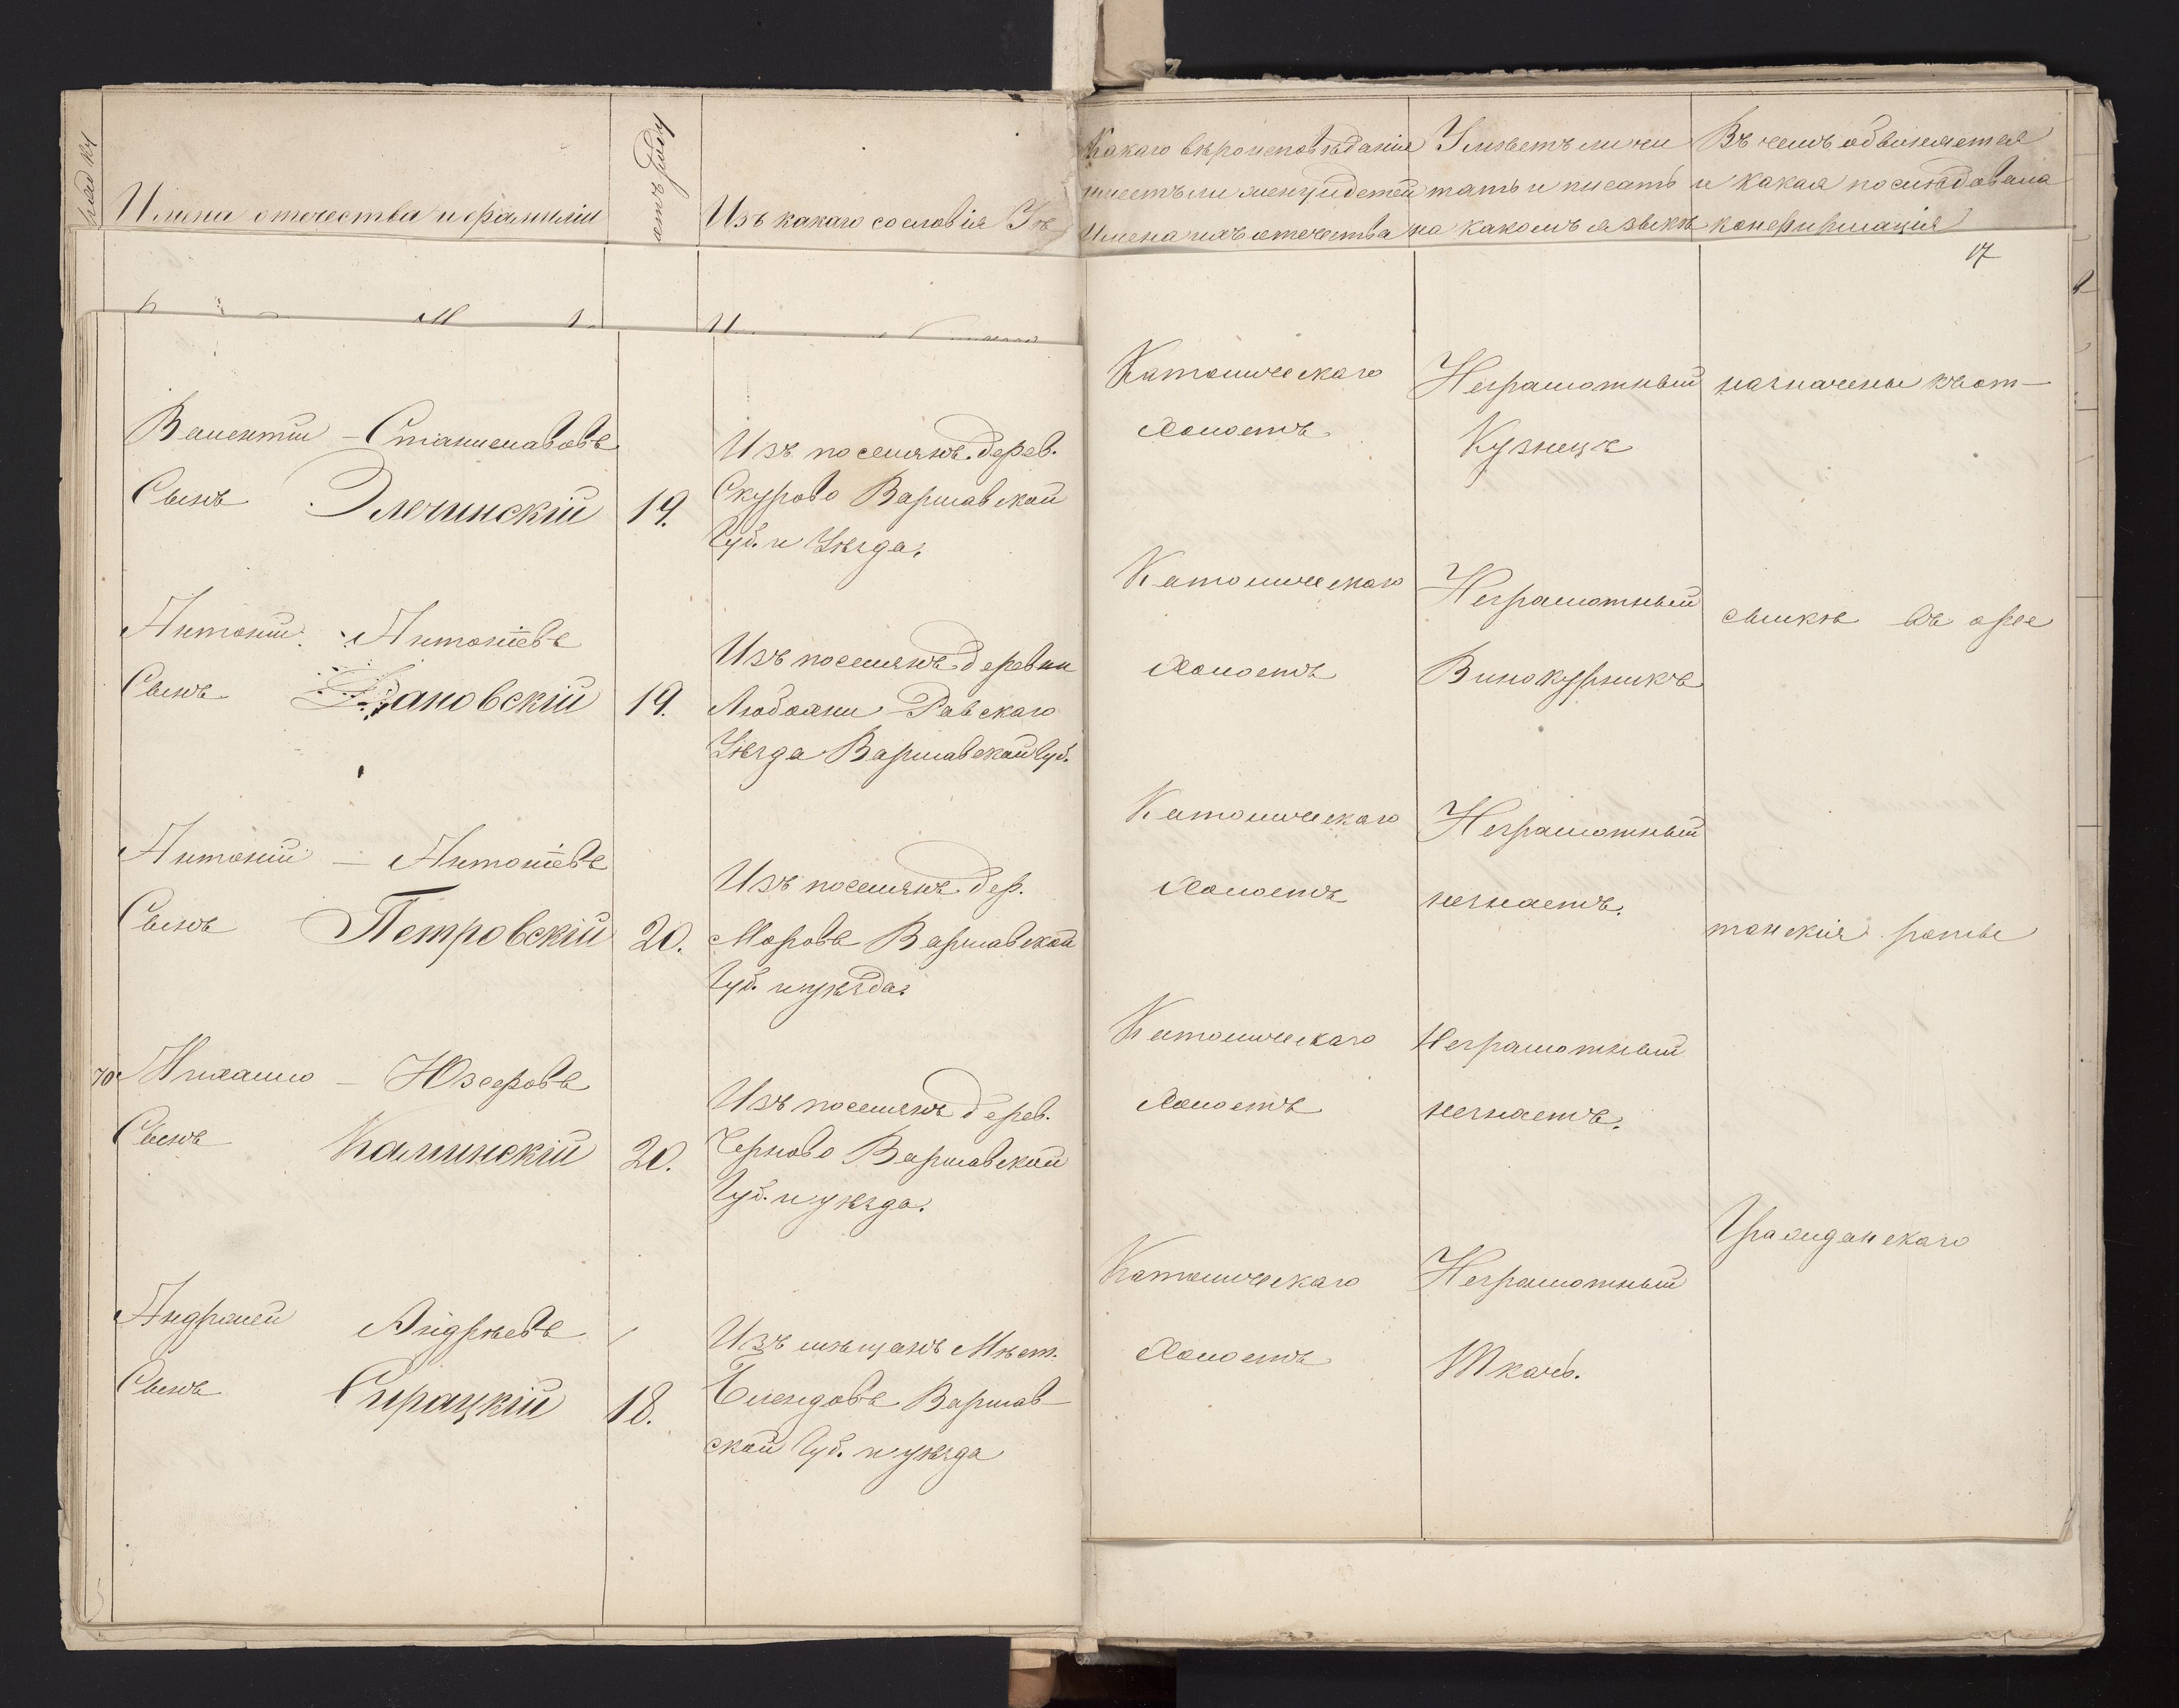 Имена отечества и фамиліи
лѣтъ роду
Изъ какаго сословія
Какаго вѣроисповѣданія
имеетъ ли жену и детей
Имена ихъ отечества
Умѣетъ ли чи
тать и писать
на какомъ языкѣ
Въ чемъ обвиняется
и какая последовала
конфирмація
17
Валентій – Станиславовъ
Сынъ Элечинскій 19.
Изъ поселянъ дерев.
Скурово Варшавской
Губ. и Уѣзда.
Католическаго
Холостъ
Неграмотный
Кузнецъ
назначены къ от-
Антоній Антоніевъ
Сынъ 19.
Изъ поселянъ деревни
Равскаго
Уѣзда Варшавской Губ.
Католическаго
Холостъ
Неграмотный
Винокурникъ
сылкѣ въ арес
Антоній – Антоніевъ
Сынъ Петровскій 20.
Изъ поселянъ дер.
Морове Варшавской
Губ. и уѣзда.
Католическаго
Холостъ
Неграмотный
незнаетъ.
танскія роты
70 Михаило – Юзефовъ
Сынъ Калинскій 20.
Изъ поселянъ дерев.
Черново Варшавской
Губ. и уѣзда.
Католическаго
Холостъ
Неграмотный
незнаетъ.
Гражданскаго
Андржей Андрѣевъ
Сынъ Сирацкій 18.
Изъ мѣщанъ Мѣст.
Блендовъ Варшав-
ской Губ. и уѣзда
Католическаго
Холостъ
Неграмотный
Ткачь.